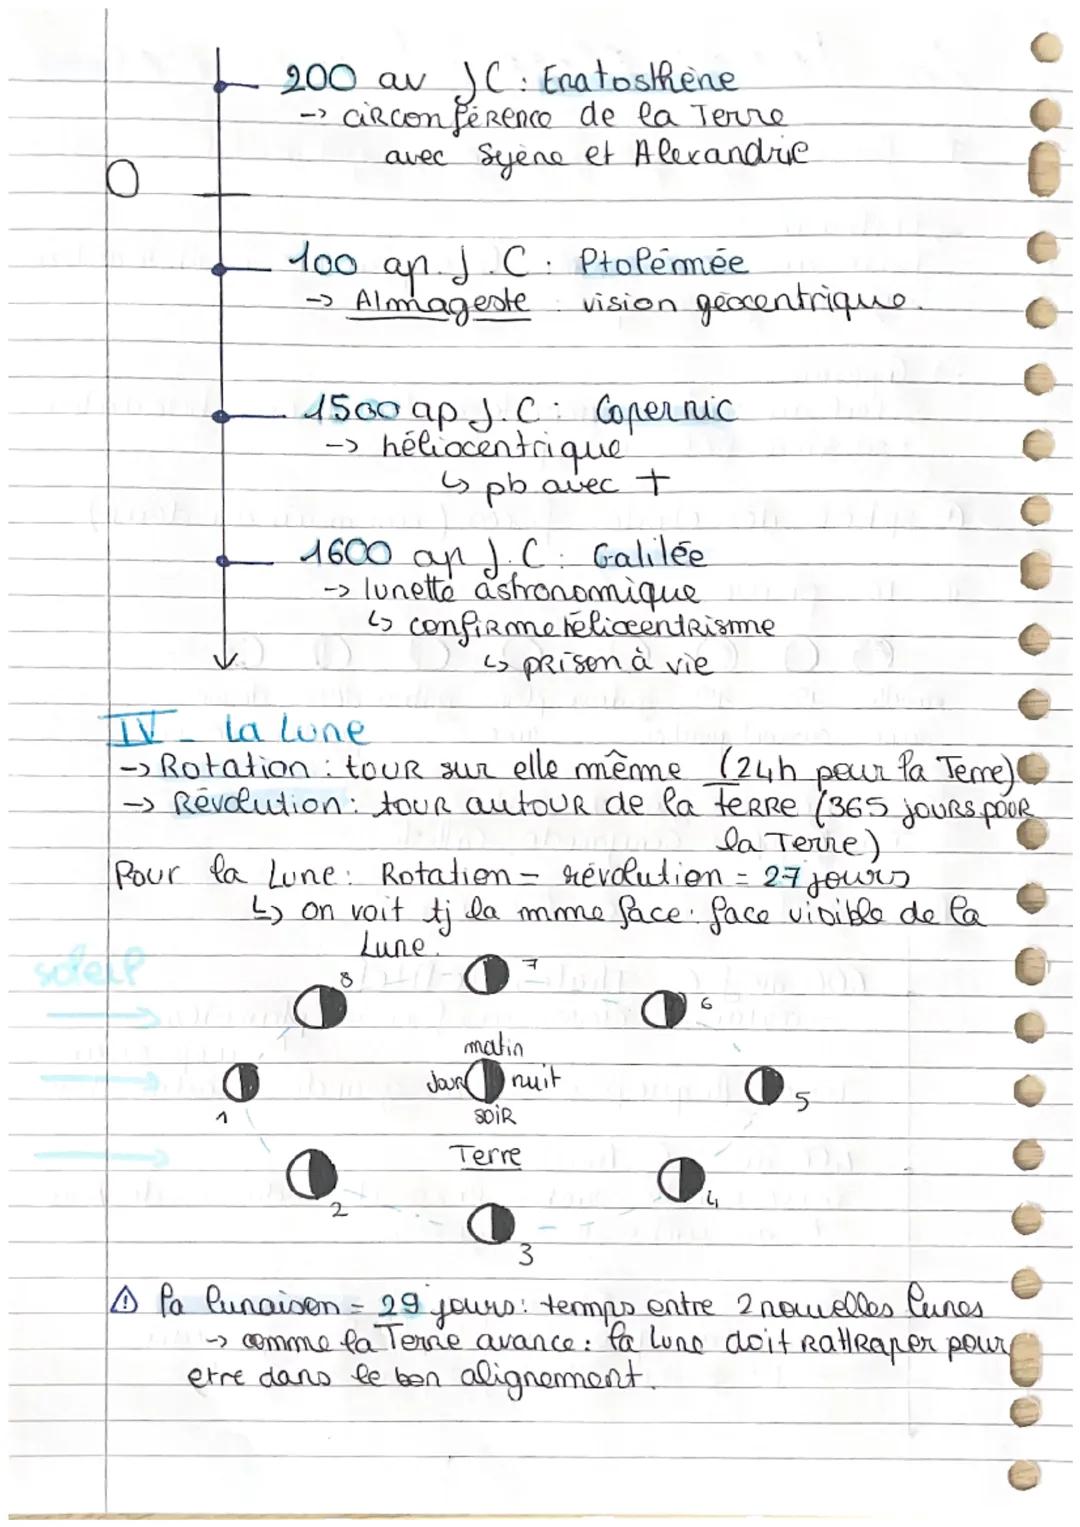 200 av JC : Eratosthène
-> circonférence de la Terre
avec Syène et Alexandrie
O
100 ap. J.C : Ptolémée
-> Almageste : vision géocentrique.
1500 ap J.C : Copernic
-> héliocentrique
↳ pb avec †
1600 ap J.C : Galilée
-> lunette astronomique
↳ confirme héliocentrisme
↳ prison à vie
IV - La Lune
-> Rotation : tour sur elle même (24h pour la Terre)
-> Révolution : tour autour de la terre (365 jours pour
la Terre)
Pour la Lune : Rotation = révolution = 27 jours
↳ on voit tj la mme face : face visible de la
Lune.
soleil
8
7
6
matin
Jour nuit
soir
1
5
Terre
2
4
3
⚠ la lunaison = 29 jours : temps entre 2 nouvelles lunes
-> comme la Terre avance : la lune doit rattraper pour
etre dans le bon alignement.